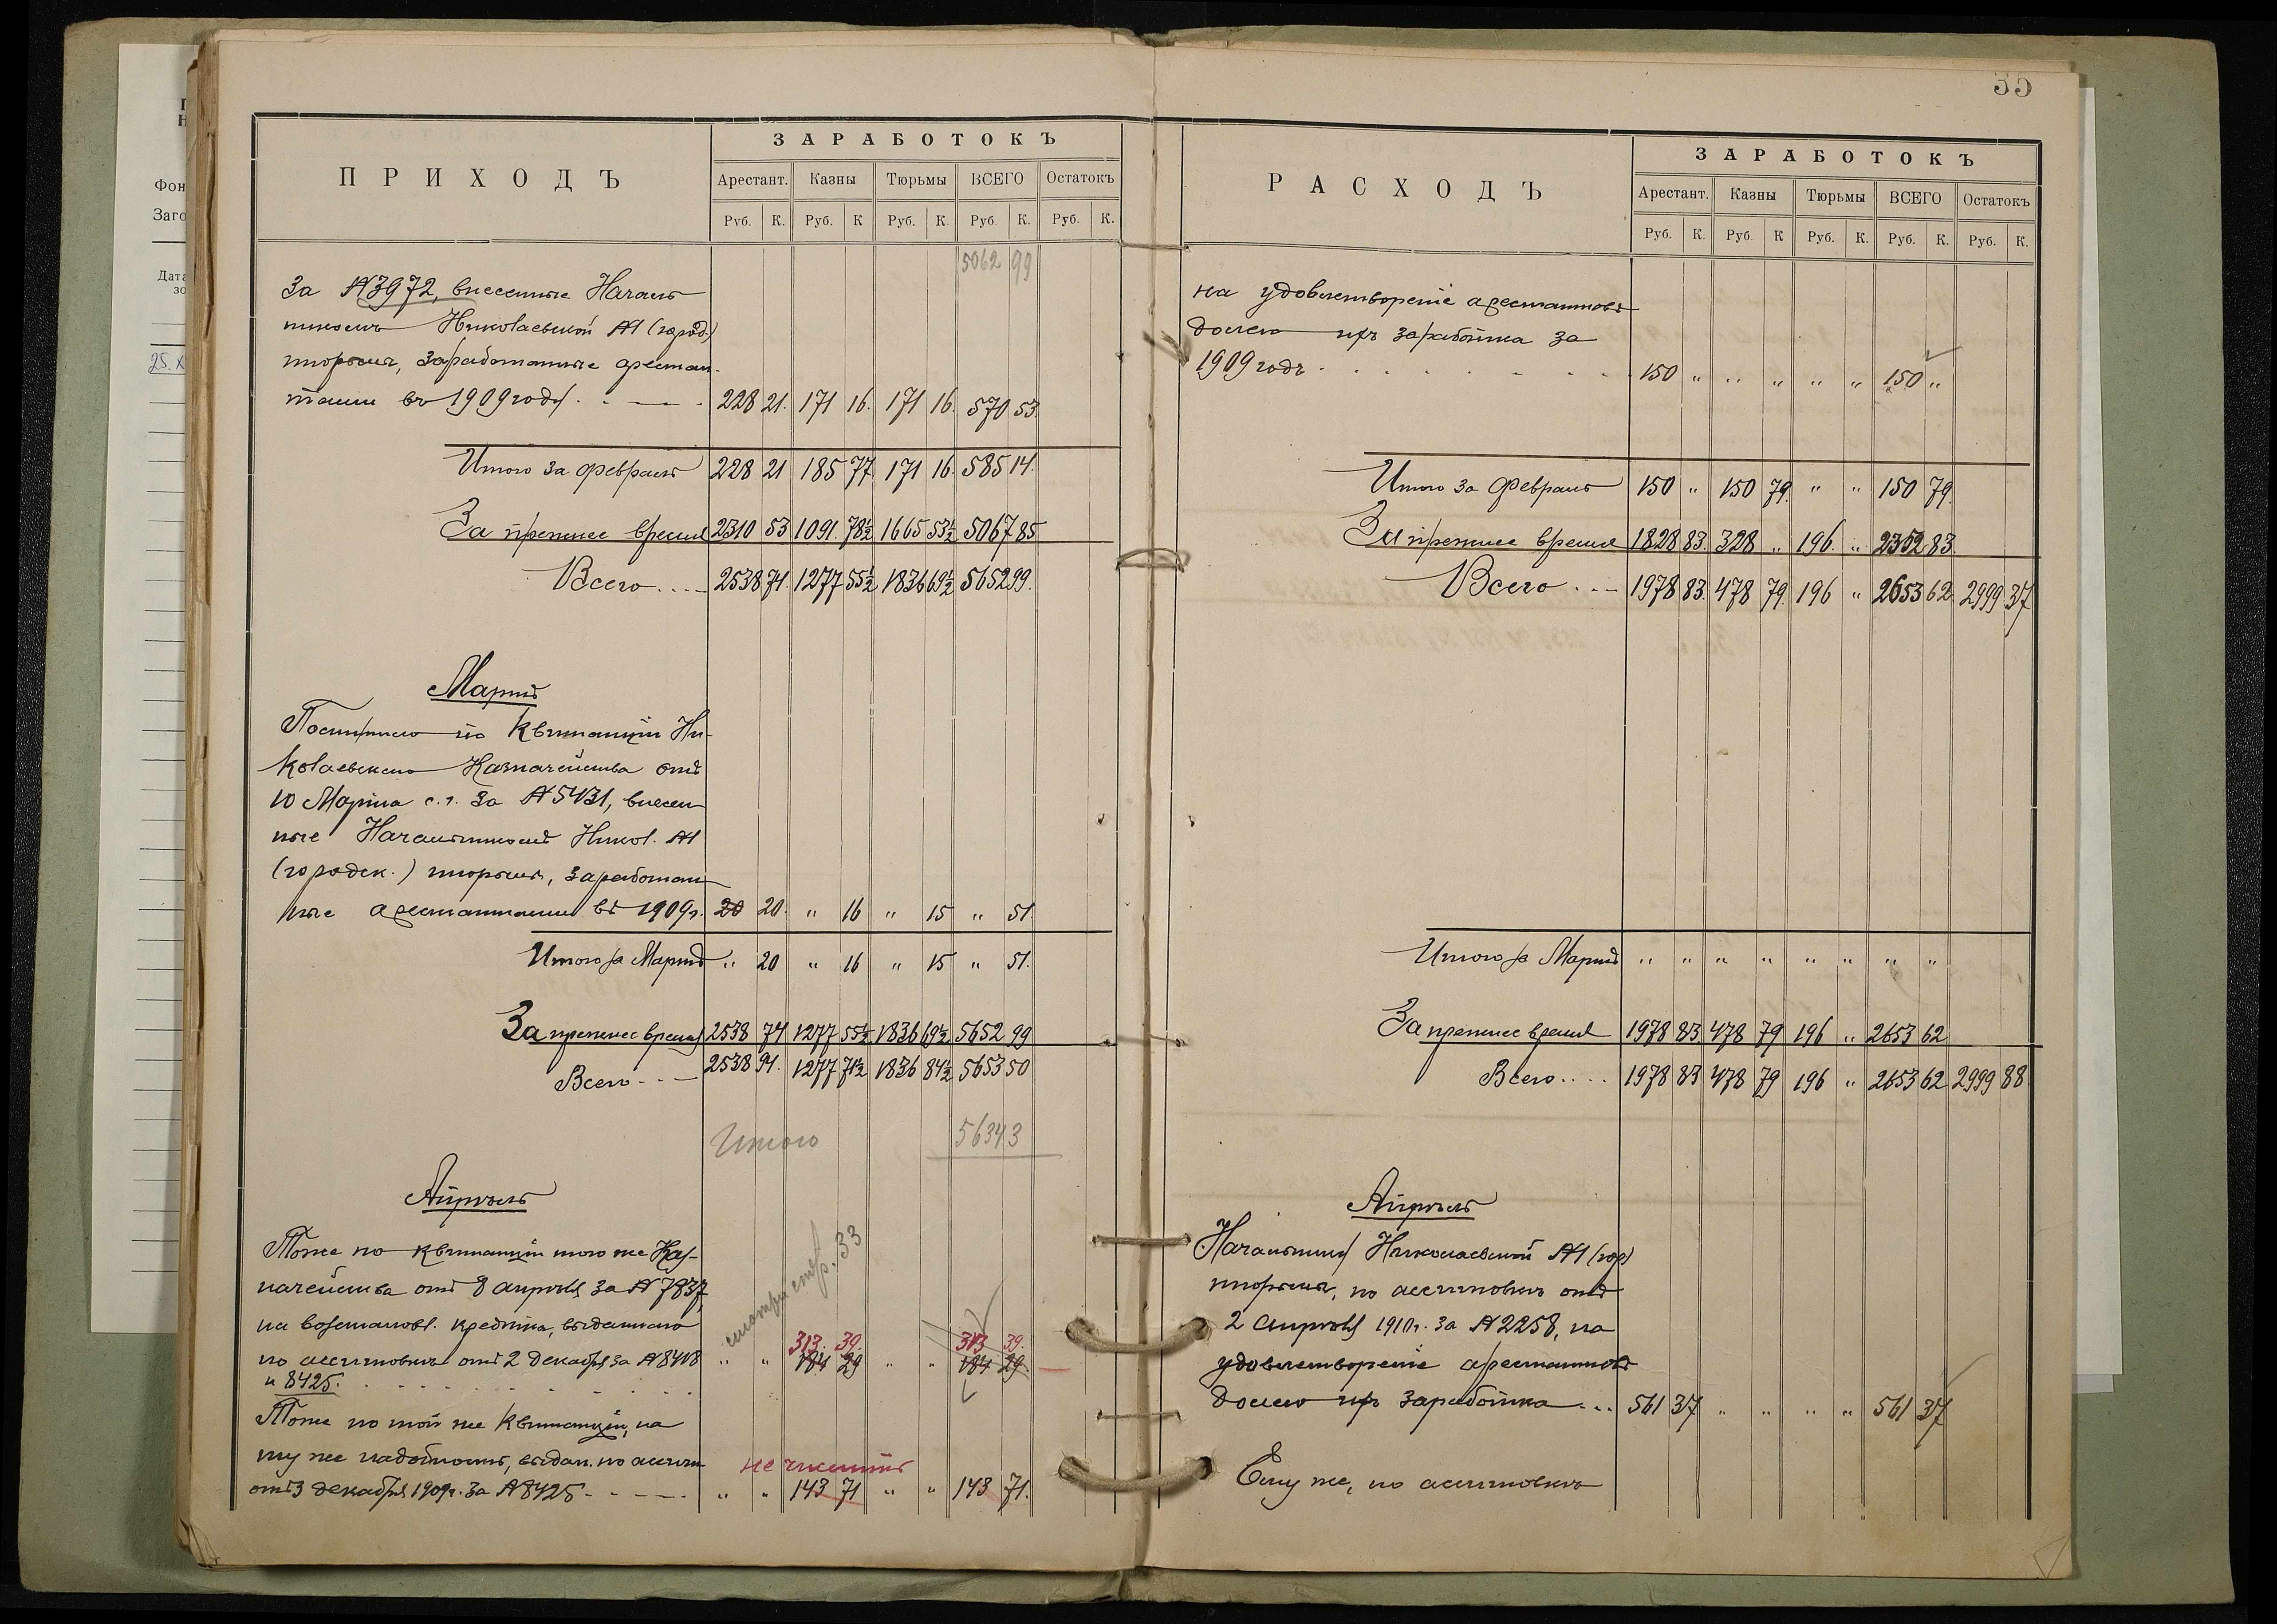 35
ПРИХОДЪ
ЗАРАБОТОКЪ
Арестант. Казны Тюрьмы ВСЕГО Остатокъ
Руб. К. Руб. К Руб. К. Руб. К. Руб. К.
5062 99
За №3972, внесенные Началь
никомъ Николаевской №1 (город.)
тюрьмы, заработанные арестан-
тами въ 1909 году . . — . 228 21. 171 16. 171 16. 570 53
Итого за февраль 228 21 185 77. 171 16. 585 14.
За прежнее время 2310 53 1091. 78½ 1665 53½ 5067 85
Всего . . . — 2538 74. 1277 55½ 1836 69½ 5652 99.
Мартъ
Поступило по квитанціи Ни-
колаевскаго Казначейства отъ
10 Марта с. г. за №5431, внесен
ные Начальникомъ Никол. №1
(городск.) тюрьмы, заработан
ные арестантами въ 1909 г. 20 20. " 16 " 15 " 51.
Итого за Мартъ " 20 " 16 " 15 " 51.
За прежнее время 2538 74 1277 55½ 1836 69½ 5652 99
Всего . . — 2538 94. 1277 71½ 1836 84½ 5653 50
Итого 5634 3
Апрѣль
Тоже по квитанціи того же Каз-
начейства отъ 8 апрѣля за №7837
на возстановл. кредита, выданнаго
смотри стр. 33
313. 39. 313 39.
по ассигновкѣ отъ 2 декабря за №8418 " " 184 29 " " 184 29.
и 8425.
Тоже по той же квитанціи, на
ту же надобность, выдан. по ассигн
не числить
отъ 3 декабря 1909 г. за №8425 - - — " " 143 71 " " 143 71.
РАСХОДЪ
ЗАРАБОТОКЪ
Арестант. Казны Тюрьмы ВСЕГО Остатокъ
Руб. К. Руб. К Руб. К. Руб. К. Руб. К.
на удовлетвореніе арестантовъ
долею изъ заработка за
1909 годъ . . . . . . . 150 " " " " " 150 "
Итого за Февраль 150 " 150 79. " " 150 79.
За прежнее время 1828 83. 328 " 196. " 2352 83.
Всего . . — 1978 83. 478 79. 196 " 2653 62. 2999 37
Итого за Мартъ " " " " " " " "
За прежнее время 1978 83 478 79 196 " 2653 62
Всего . . . . 1978 83 478 79 196 " 2653 62 2999 88
Апрѣль
Начальнику Николаевской №1 (гор)
тюрьмы, по ассигновкѣ отъ
2 Апрѣля 1910 г. за №2258, на
удовлетвореніе арестантовъ
долею изъ заработка . . . 561 37 " " " " 561 37
Ему же, по ассигновкѣ